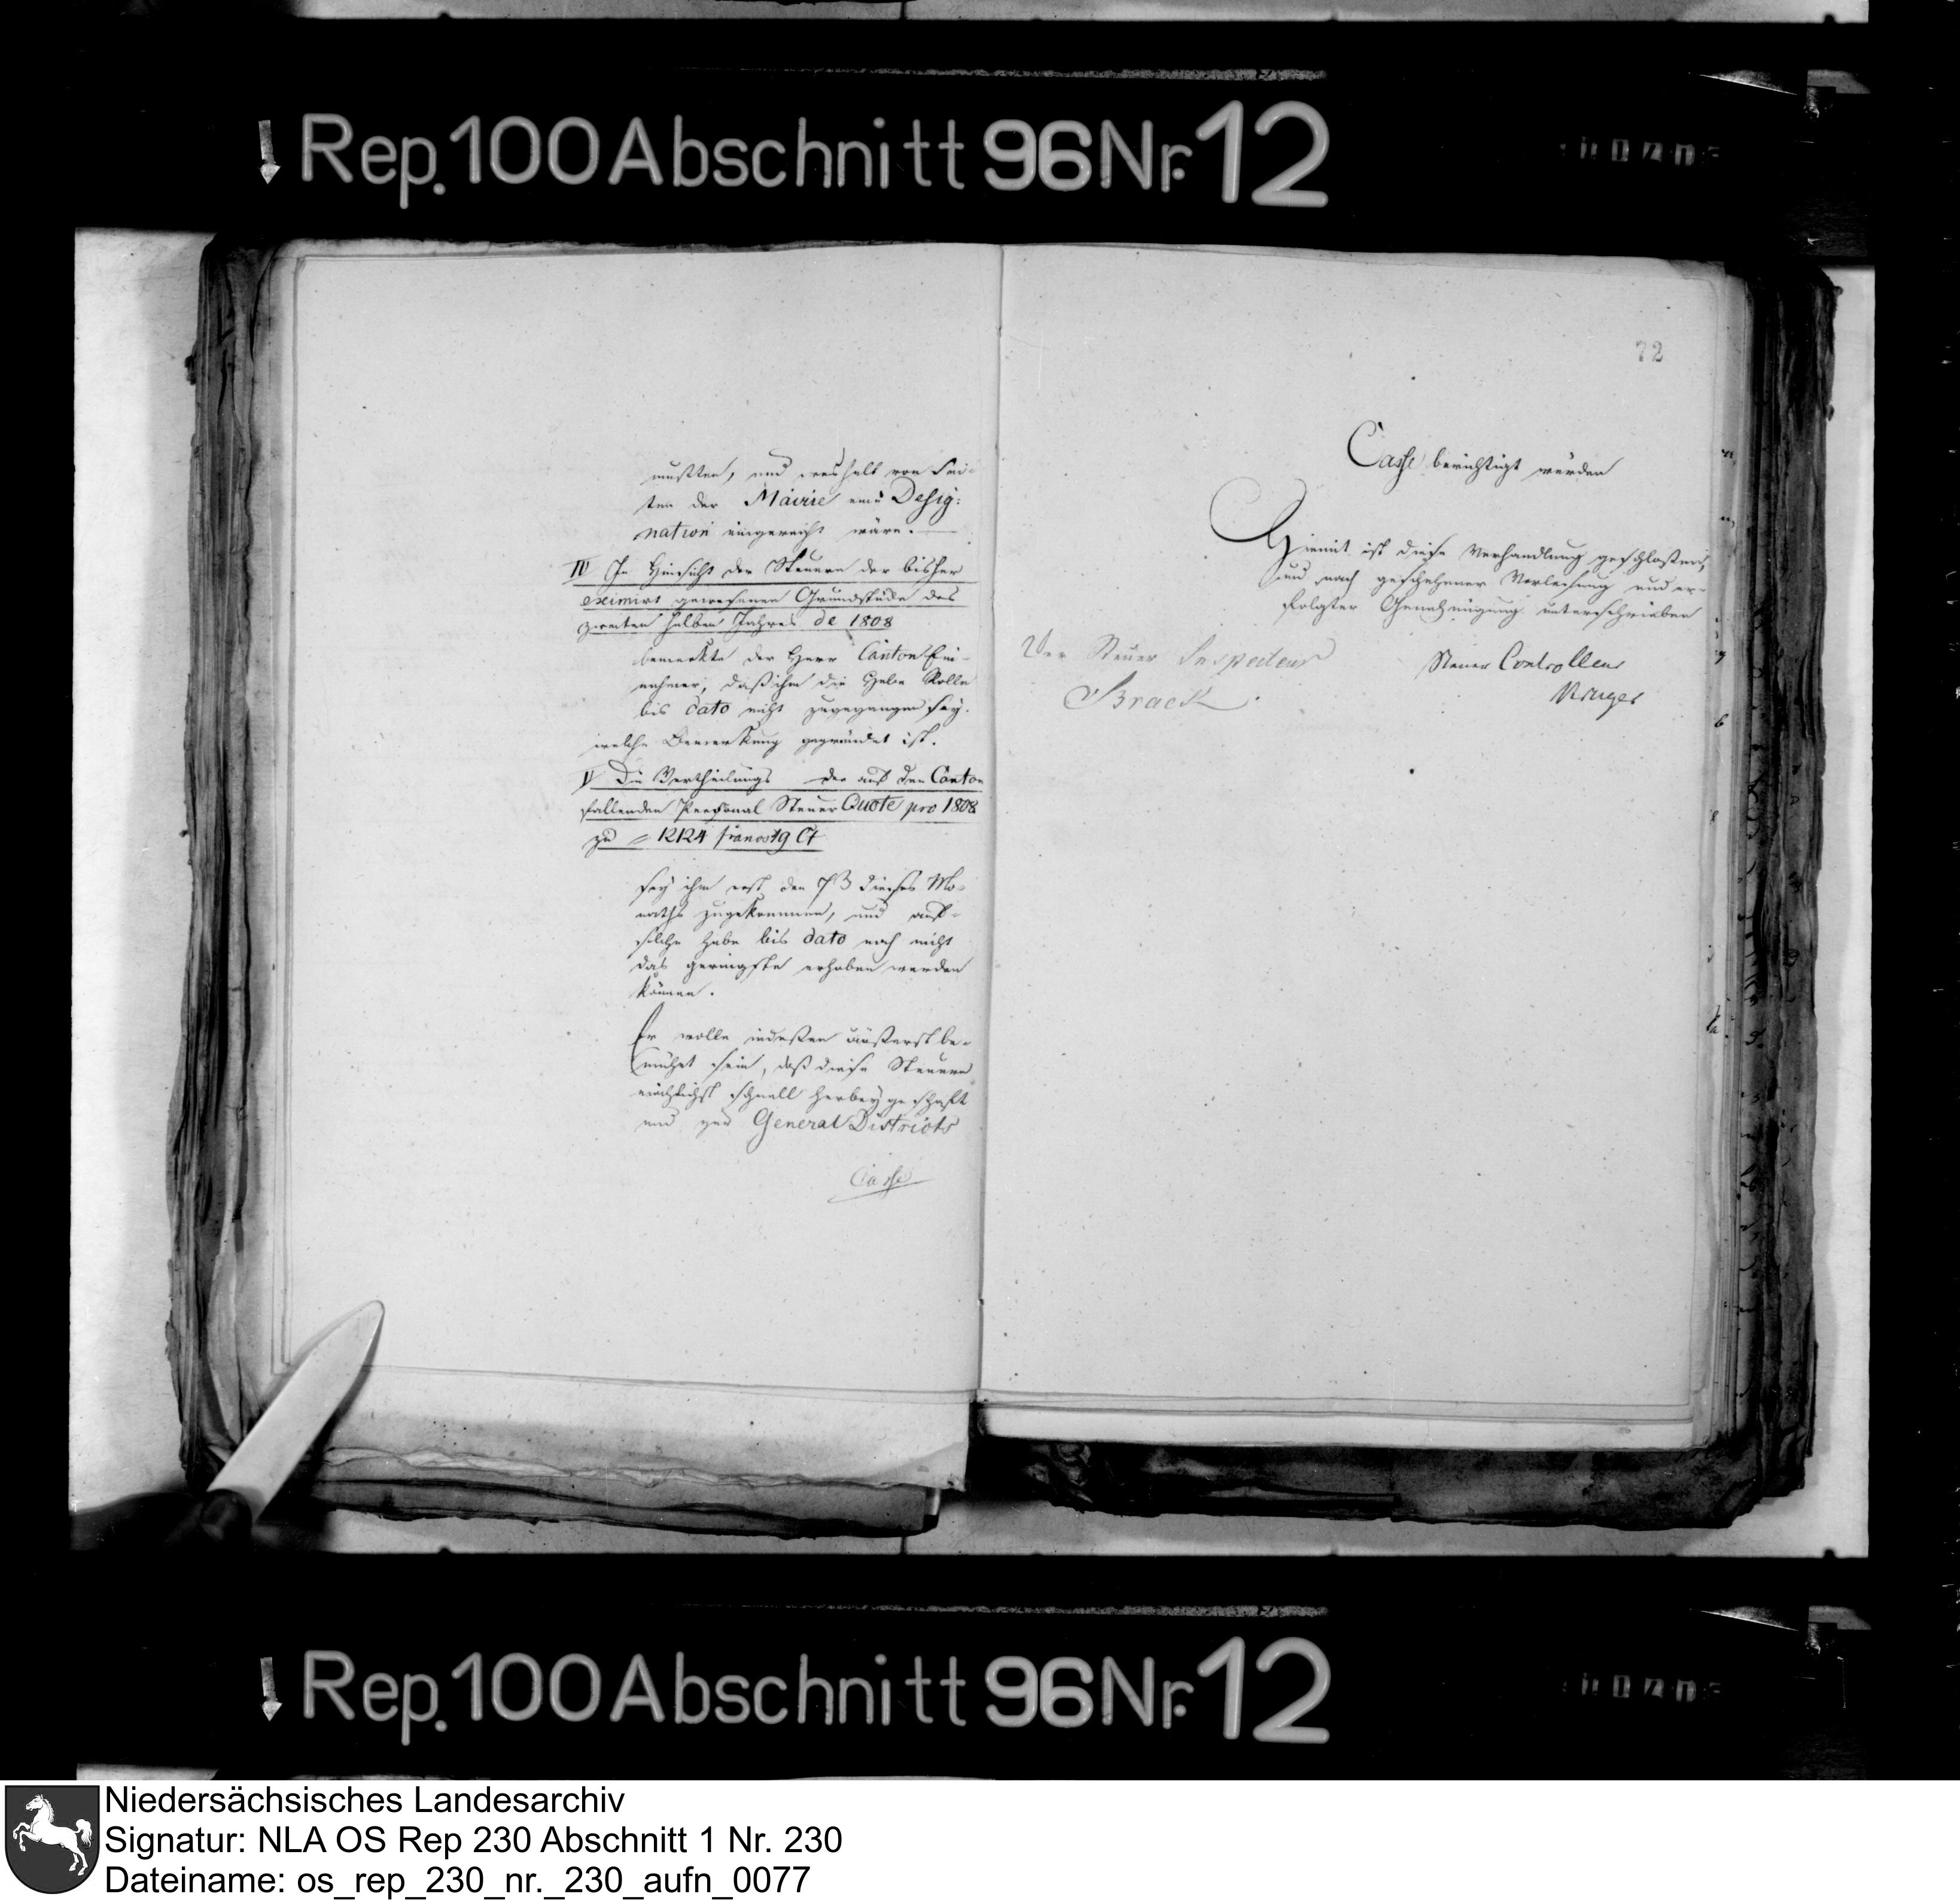 Rep. 100 Abschnitt 96 Nr. 12
mußten, und weshalb von Sei-
ten der Mairie eine Desig:
nation eingereicht wäre.
IV In Hinsicht der Steuern der bisher
eximirt gewesenen Grundstücke des
zweiten halben Jahres de 1808
bemerkte der Herr Canton Ein-
nehmer, daß ihm die Hebe Rolle
bis dato nicht zugegangen sey.
welche Bemerkung gegründet ist.
V Die Vertheilungs der auf den Canton
fallenden Personal Steuer Quote pro 1808
zu = 12124 francs 19 Ct
sey ihm erst den dieses Mo-
naths zugekommen, und auf
solche habe bis dato noch nicht
das geringste erhoben werden
können.
Er wolle indeßen äußerst be-
mühet sein, daß diese Steuern
möglichst schnell herbey geschaft
und zur General Districts
Casse
72
Casse berichtigt würden
Hiemit ist diese Verhandlung geschloßen,
und nach geschehener Verlesung und er-
folgter Genehmigung unterschrieben
Der Steuer Inspecteur
Brack
Steuer Controlleur
Kruger
Rep. 100 Abschnitt 96 Nr. 12
Niedersächsisches Landesarchiv
Signatur: NLA OS Rep 230 Abschnitt 1 Nr. 230
Dateiname: os_rep_230_nr._230_aufn_0077